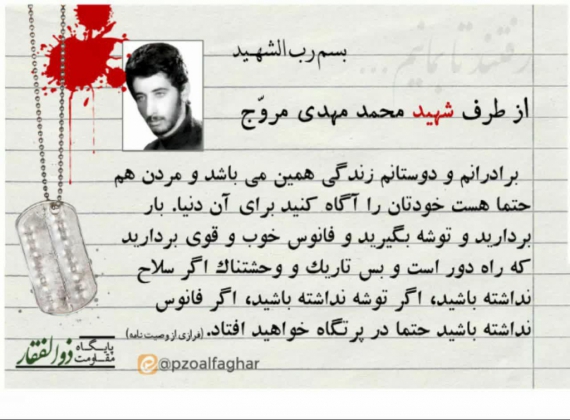 بسم رب الشهید
رفتند تا بمانیم ...
از طرف شهید محمد مهدی مروّج
برادرانم و دوستانم زندگی همین می باشد و مردن هم
حتما هست خودتان را آگاه کنید برای آن دنیا. بار
بردارید و توشه بگیرید و فانوس خوب و قوی بردارید
که راه دور است و بس تاریك و وحشتناك اگر سلاح
نداشته باشید، اگر توشه نداشته باشید، اگر فانوس
نداشته باشید حتما در پرتگاه خواهید افتاد. (فرازی از وصیت نامه)
پایگاه مقاومت ذوالفقار
@pzoalfaghar